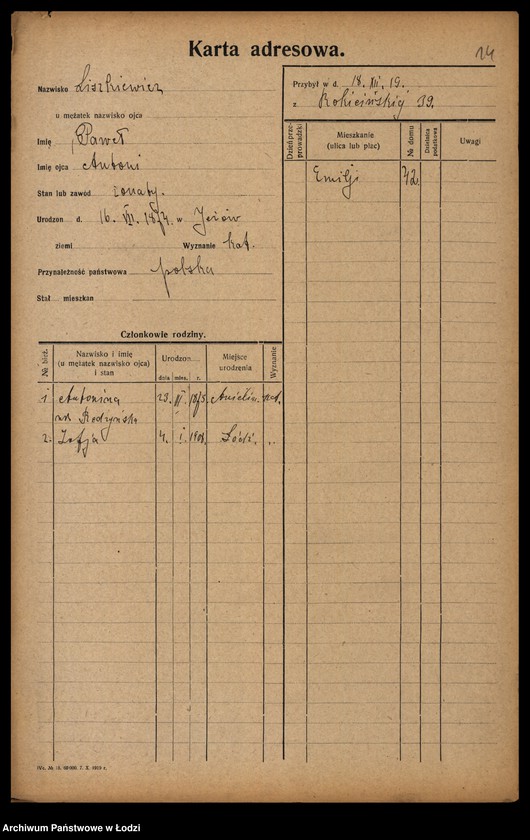 Karta adresowa.
14
Nazwisko Liszkiewicz
u mężatek nazwisko ojca
Imię Paweł
Imię ojca Antoni
Stan lub zawód żonaty.
Urodzon d. 16. VII. 1874. w Jeżów
ziemi Wyznanie kat.
Przynależność państwowa polska
Stał. mieszkan
Przybył w d. 18. XII. 19.
z Rokicińskiej 39.
Dzień przeprowadzki Mieszkanie (ulica lub plac) № domu Dzielnica podatkowa Uwagi
Emilji 42.
Członkowie rodziny.
№ bież. Nazwisko i imię (u mężatek nazwisko ojca) i stan Urodzon Miejsce urodzenia Wyznanie
dnia mies. r.
1 Antonina 23. 1875. Anielin. kat.
2. Zofja 4. I. 1908. Łódź. „
7. X. 1919 r.
Archiwum Państwowe w Łodzi